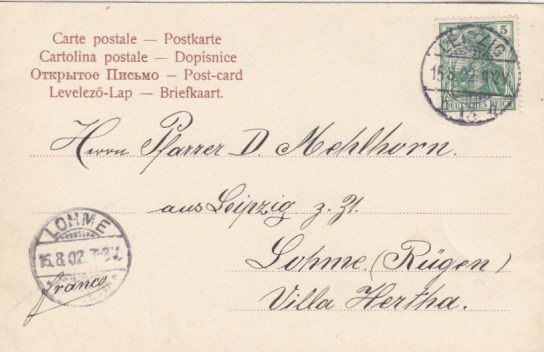 Carte postale — Postkarte
Cartolina postale — Dopisnice
Открытое Письмо — Post-card
Levelező-Lap — Briefkaart.
5
LEIPZIG
15.8.02.
DEUTSCHES REICH
Herrn Pfarrer D. Mehlhorn.
aus Leipzig z. Zt.
Lohme (Rügen)
Villa Hertha.
LOHME
16.8.02. 7-8V.
franco